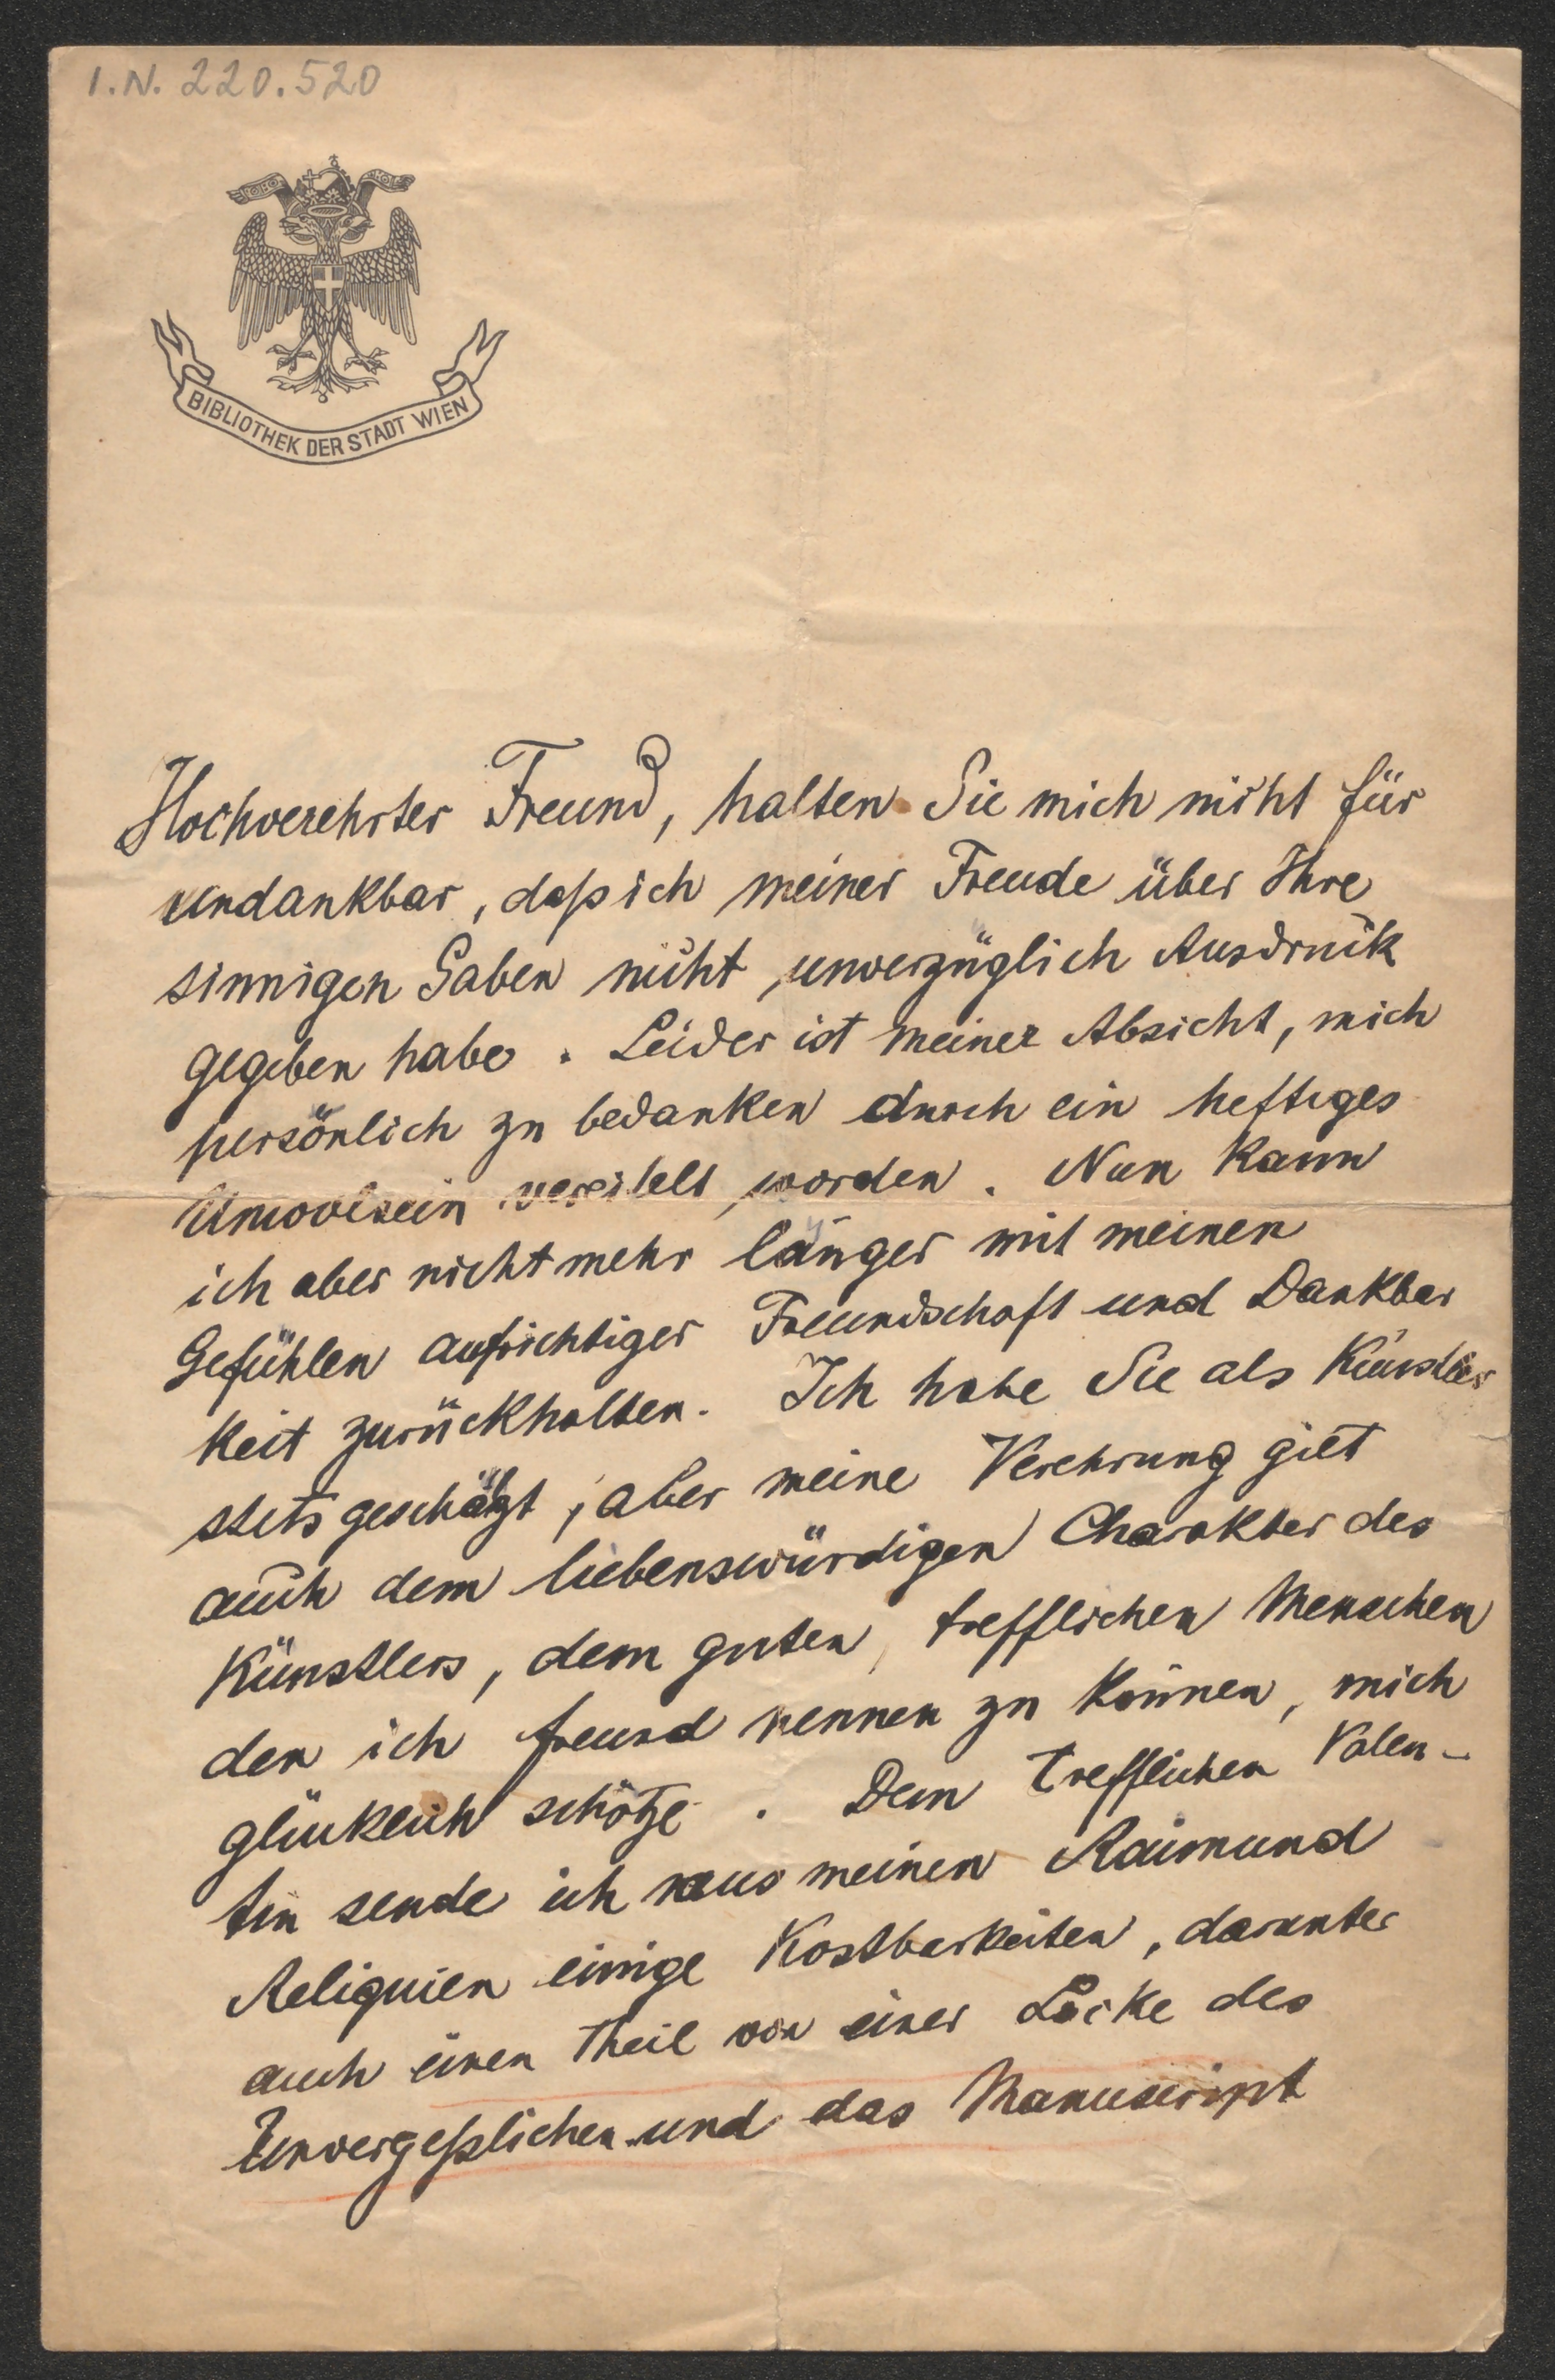 I.N. 220.520
BIBLIOTHEK DER STADT WIEN
Hochverehrter Freund, halten Sie mich nicht für
undankbar, daß ich meiner Freude über Ihre
sinnigen Gaben nicht unverzüglich Ausdruck
gegeben habe. Leider ist meiner Absicht, mich
persönlich zu bedanken durch ein heftiges
Unwolsein vereitelt worden. Nun kann
ich aber nicht mehr länger mit meinen
Gefühlen aufrichtiger Freundschaft und Dankbar
keit zurückhalten. Ich habe Sie als Künstler
stets geschätzt, aber meine Verehrung gilt
auch dem liebenswürdigen Charakter des
Künstlers, dem guten, trefflichen Menschen
den ich Freund nennen zu können, mich
glücklich schätze. Dem trefflichen Valen-
tin sende ich aus meinen Raimund
Reliquien einige Kostbarkeiten, darunter
auch einen Theil von einer Locke des
Unvergeßlichen und das Manuscript